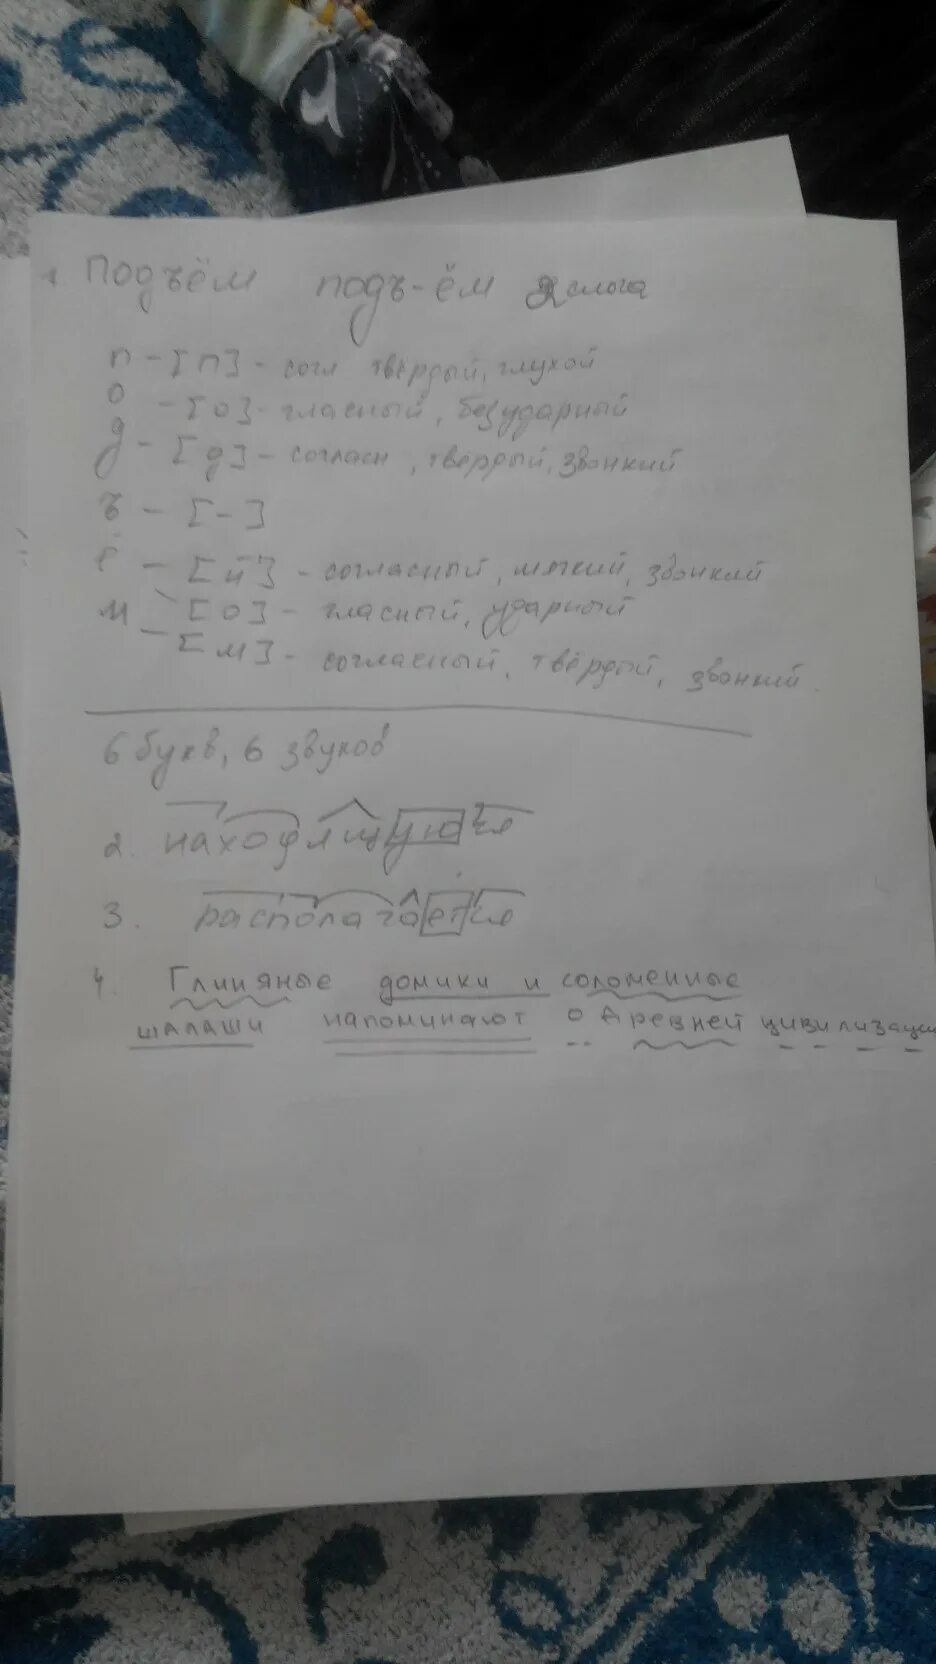 1 Подъём подъ-ём 2 слога
п - [п] - согл твёрдый, глухой
о - [о] - гласный, безударный
д - [д] - согласн, твёрдый, звонкий
ъ - [-]
ё - [й'] - согласный, мягкий, звонкий
[о] - гласный, ударный
м - [м] - согласный, твёрдый, звонкий.
6 букв, 6 звуков
2. находящуюся
3. располагается
4. Глиняные домики и соломенные
шалаши напоминают о древней цивилизации